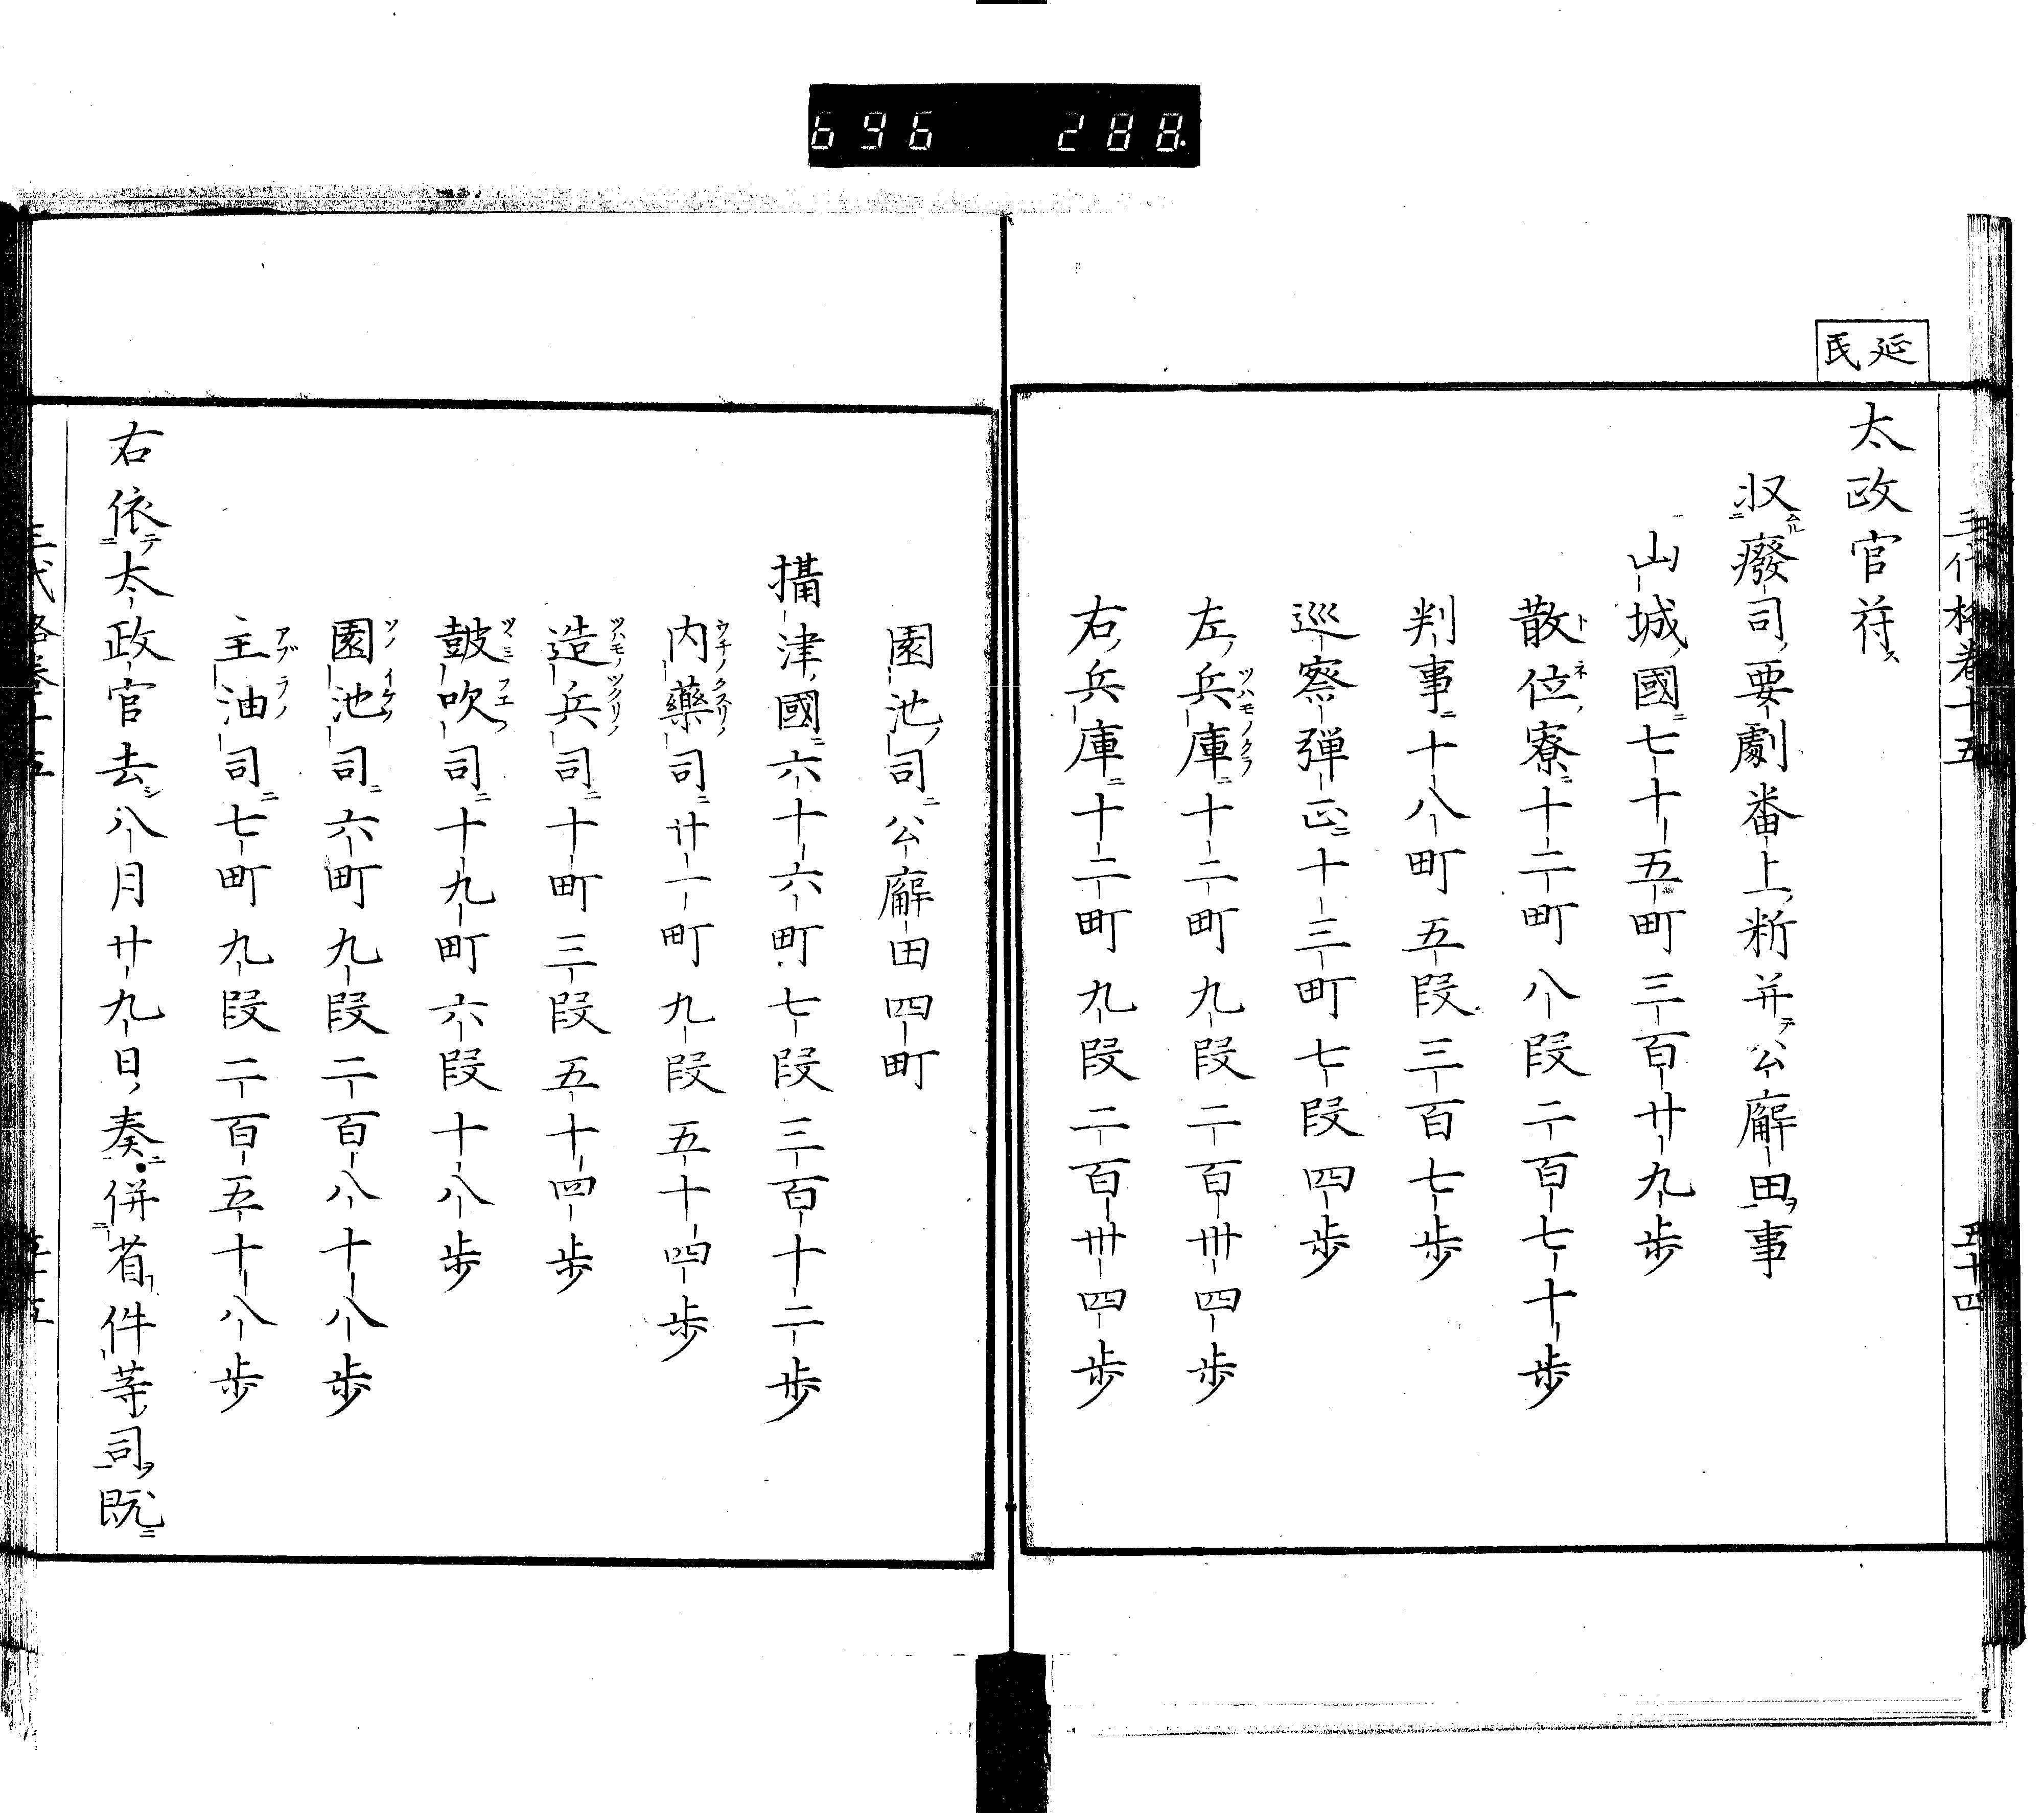 696 288
延民
三代格卷十五 五十四
太政官符ス
収ムル二癈司ノ要劇番上ノ䉼并テ公廨田ヲ事
山城ノ國ニ七十五町三百廿九歩
散位トネノ寮ニ十二町八段二百七十歩
判事ニ十八町五段三百七歩
巡察弾正ニ十三町七段四歩
左ノ兵庫ツハモノクラニ十二町九段二百卅四歩
右ノ兵庫ニ十二町九段二百卅四歩
園池ノ司ニ公廨田四町
攝津ノ國ニ六十六町七段三百十二歩
内藥ウチノクスリノ司ニ廿一町九段五十四歩
造兵ツハモノツクリノ司ニ十町三段五十四歩
鼓吹ツヽミフエノ司ニ十九町六段十八歩
園池ソノイケノ司ニ六町九段二百八十八歩
主油アブラノ司ニ七町九段二百五十八歩
右依テ二太政官去シ八月廿九日ノ奏ニ併二省ヲ件等ノ司ヲ既ニ
三代格卷十五 五十五